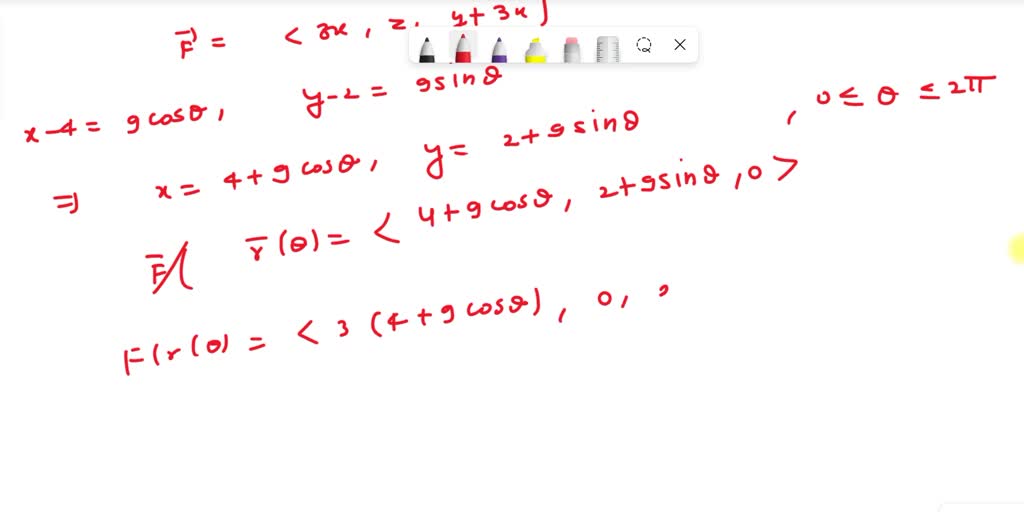 F⃗ = < 3x, z, y+3x >
x-4 = 9cosθ, y-2 = 9sinθ
⇒ x = 4+9cosθ, y = 2+9sinθ , 0 ≤ θ ≤ 2π
r̄(θ) = < 4+9cosθ, 2+9sinθ, 0 >
F(r(θ) = < 3(4+9cosθ), 0, 2